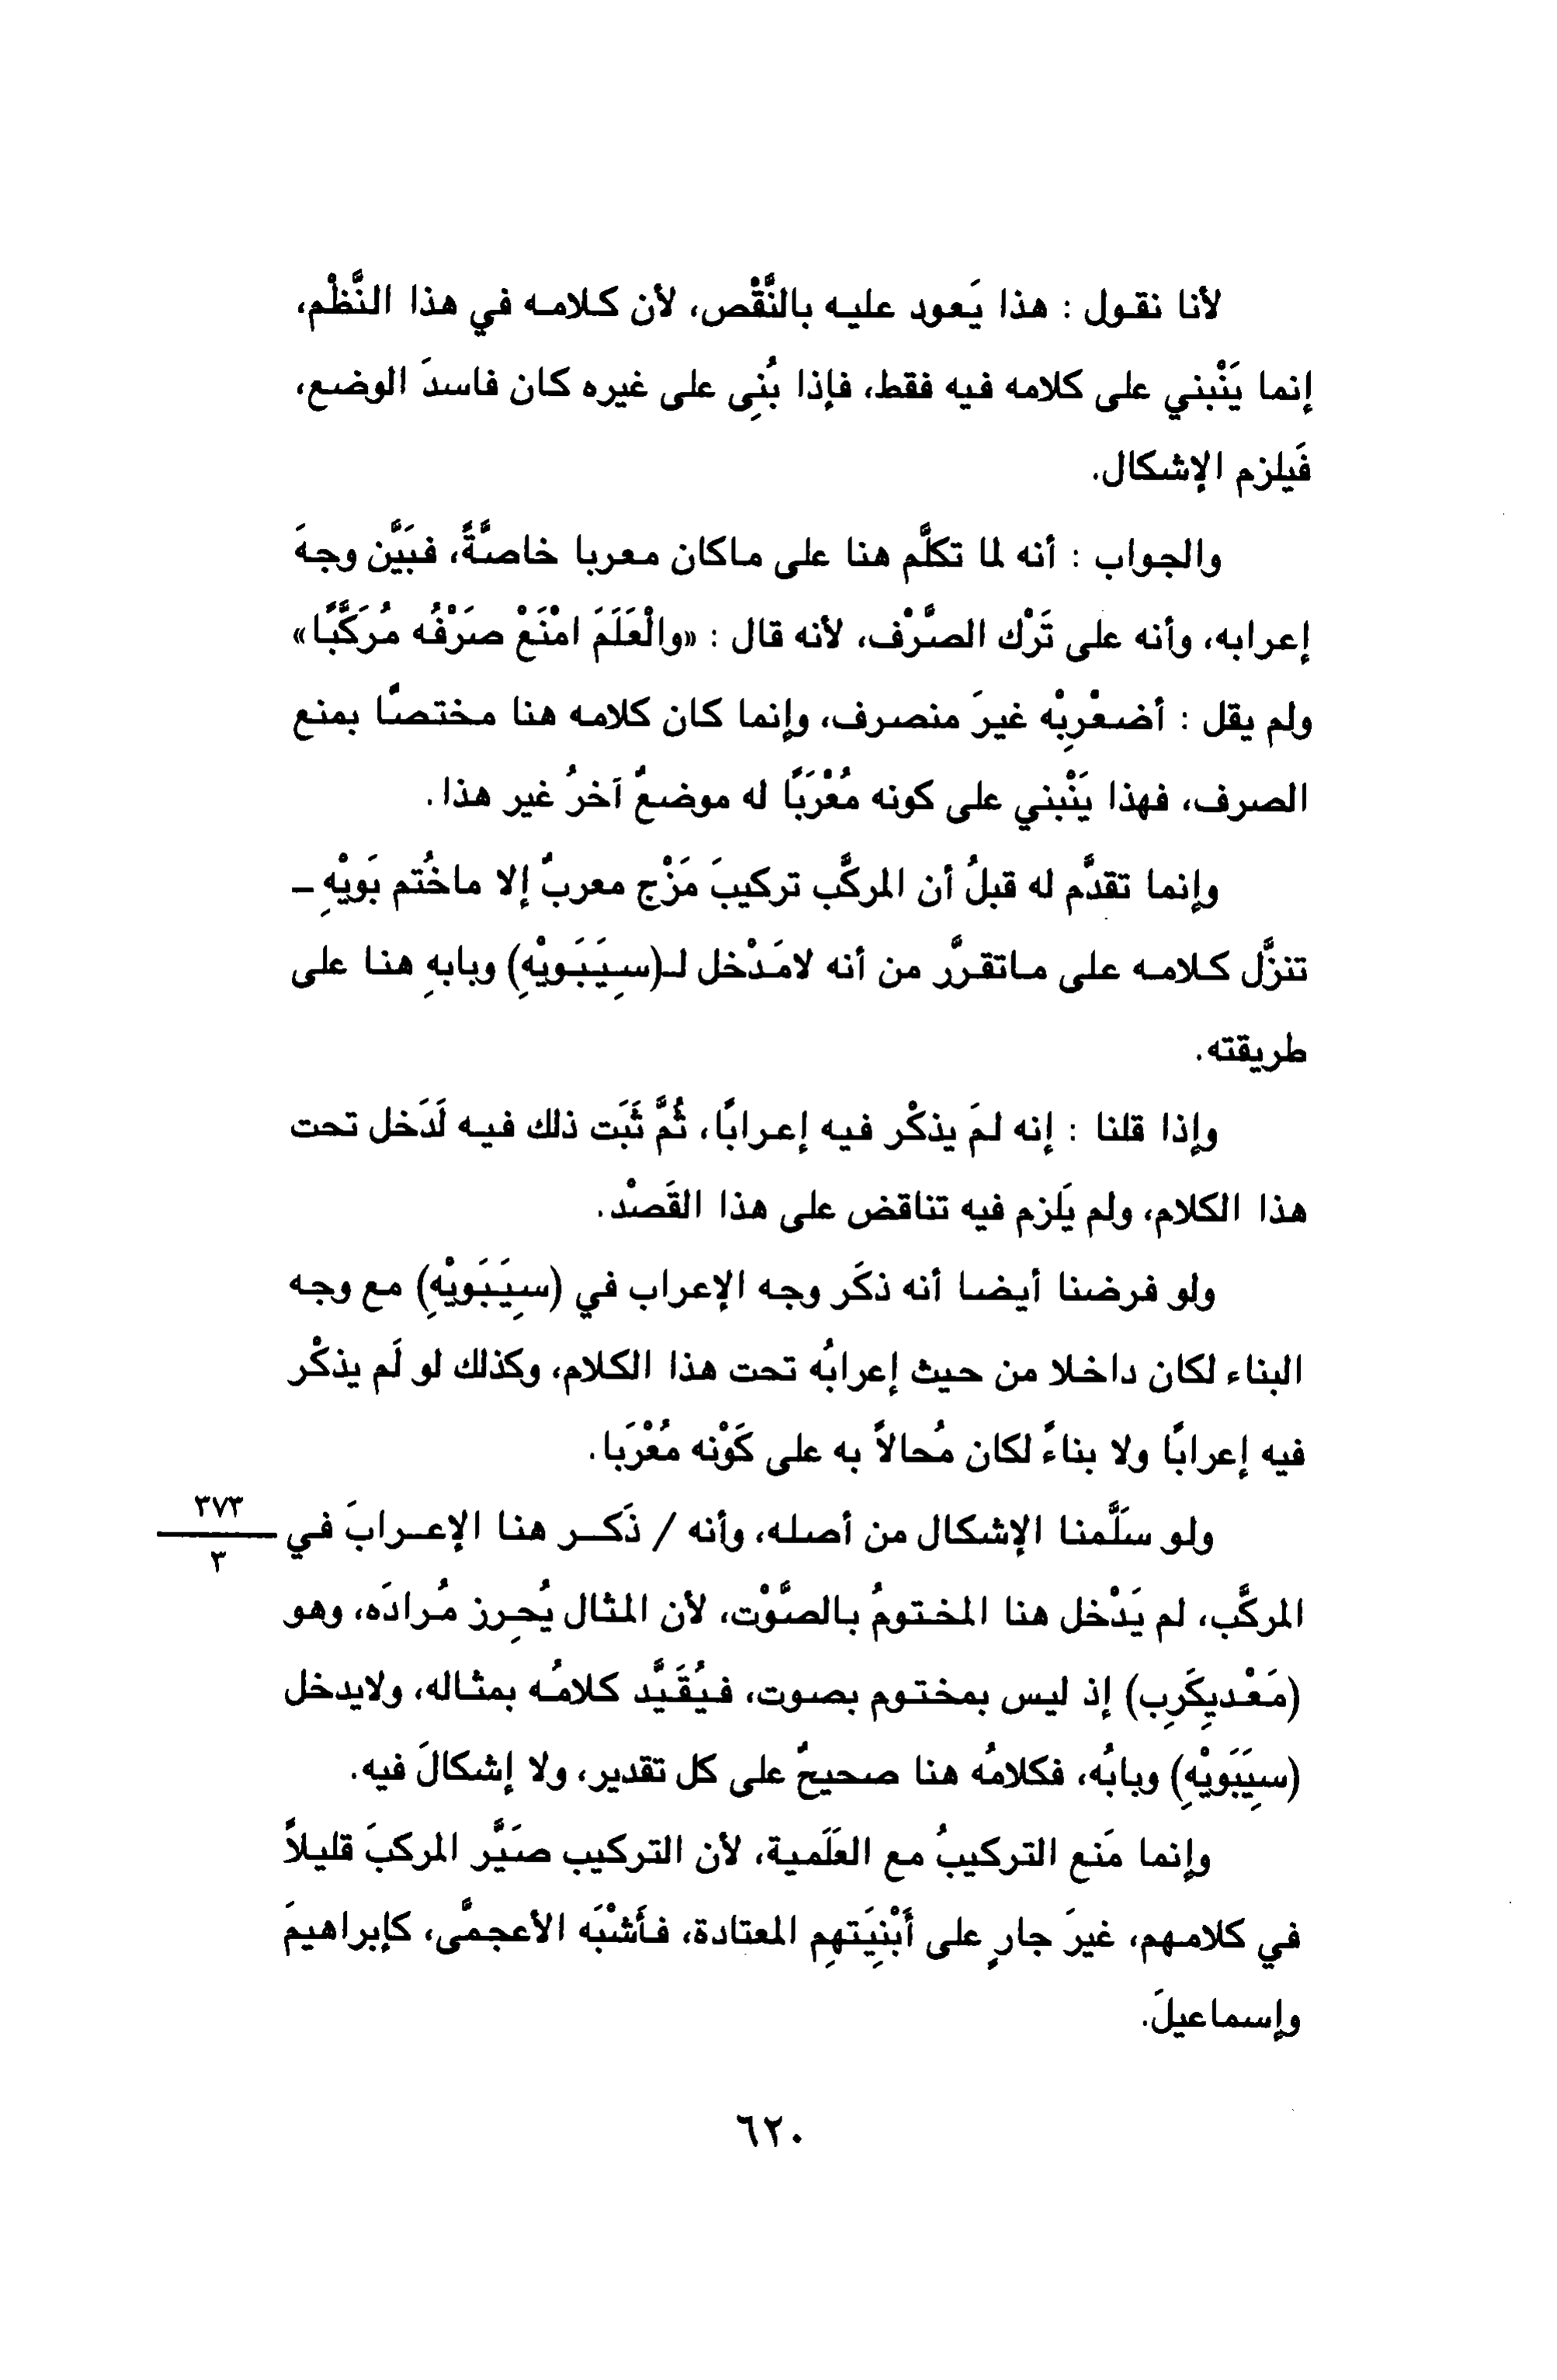 لأنا نقول : هذا يَعود عليه بالنَّقْص، لأن كلامه في هذا النَّظْم،
إنما يَنْبني على كلامه فيه فقط، فإذا بُنِى على غيره كان فاسدَ الوضع،
فَيلزم الإشكال.
والجواب : أنه لما تكلَّم هنا على ماكان معربا خاصَّةً، فبَيَّن وجهَ
إعرابه، وأنه على تَرْك الصَّرْف، لأنه قال : «والْعَلَمَ امْنَعْ صَرْفُه مُرَكَّبًا»
ولم يقل : أضعْرِبْه غيرَ منصرف، وإنما كان كلامه هنا مختصًا بمنع
الصرف، فهذا يَنْبني على كونه مُعْرَبًا له موضعٌ آخرُ غير هذا.
وإنما تقدَّم له قبلُ أن المركَّب تركيبَ مَزْج معربٌ إلا ماخُتم بَويْهِ -
تنزَّل كلامه على ماتقرَّر من أنه لامَدْخل لـ(سِيَبَويْهِ) وبابهِ هنا على
طريقته.
وإذا قلنا : إنه لمَ يذكْر فيه إعرابًا، ثُمَّ ثَبَت ذلك فيه لَدَخل تحت
هذا الكلام، ولم يَلزم فيه تناقض على هذا القَصْد.
ولو فرضنا أيضا أنه ذكَر وجه الإعراب في (سِيَبَويْهِ) مع وجه
البناء لكان داخلا من حيث إعرابُه تحت هذا الكلام، وكذلك لو لَم يذكْر
فيه إعرابًا ولا بناءً لكان مُحالاً به على كَوْنه مُعْرَبا.
ولو سلَّمنا الإشكال من أصله، وأنه / ذَكر هنا الإعرابَ في
٣٧٣
٣
المركَّب، لم يَدْخل هنا المختومُ بالصَّوْت، لأن المثال يُحرِز مُرادَه، وهو
(مَعْديِكَرِب) إذ ليس بمختوم بصوت، فيُقَيَّد كلامُه بمثاله، ولايدخل
(سِيَبَويْهِ) وبابُه، فكلامُه هنا صحيحٌ على كل تقدير، ولا إشكالَ فيه.
وإنما مَنع التركيبُ مع العَلَمية، لأن التركيب صَيَّر المركبَ قليلاً
في كلامهم، غيرَ جارٍ على أَبْنِيَتهِم المعتادة، فأَشْبَه الأعجمىَّ، كإبراهيمَ
وإسماعيلَ.
٦٢٠